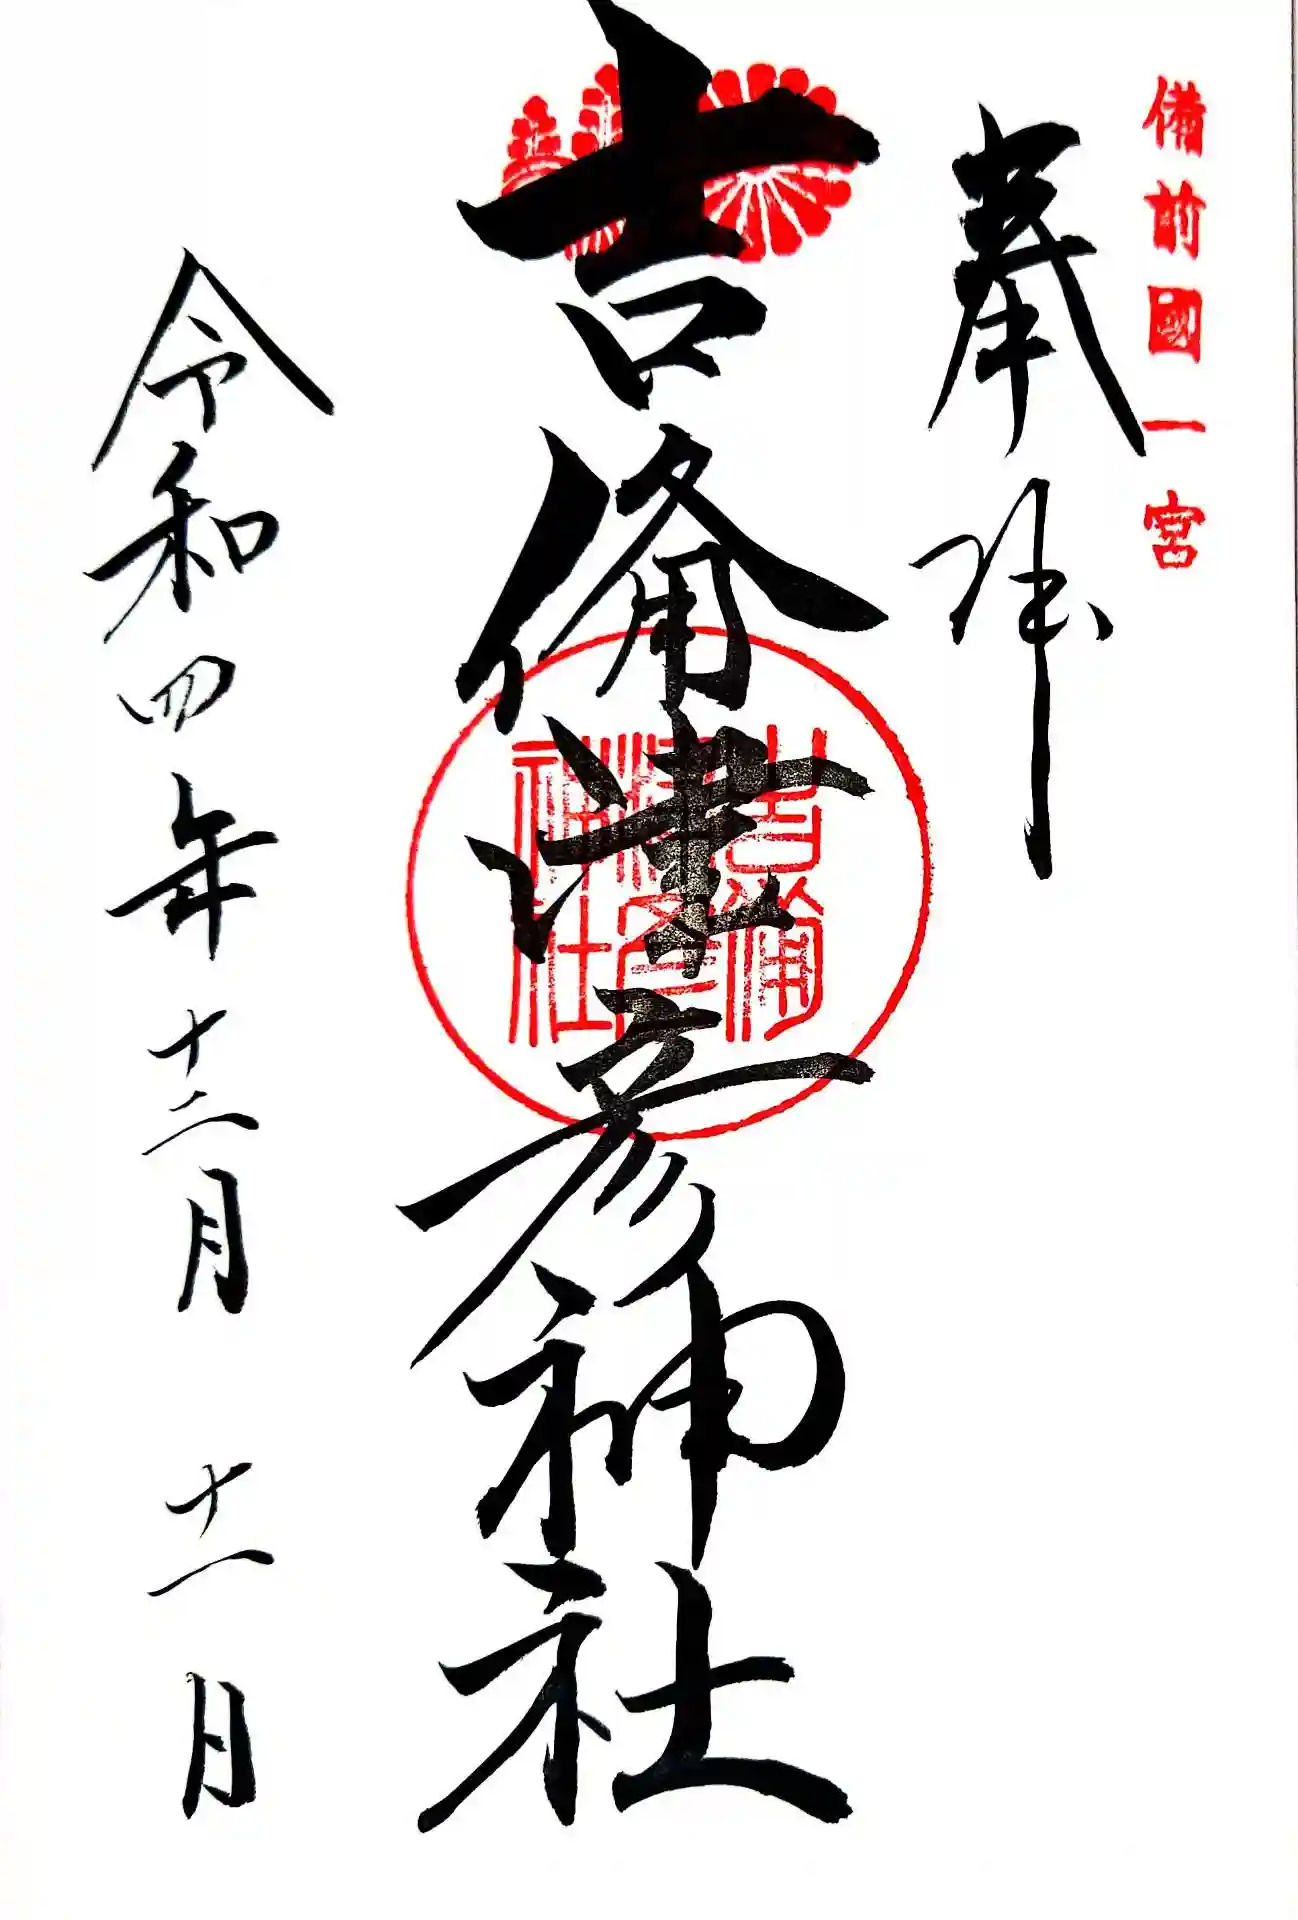 備前國一宮
奉拝
吉備津彦神社
吉備津彦神社
令和四年十二月十一日